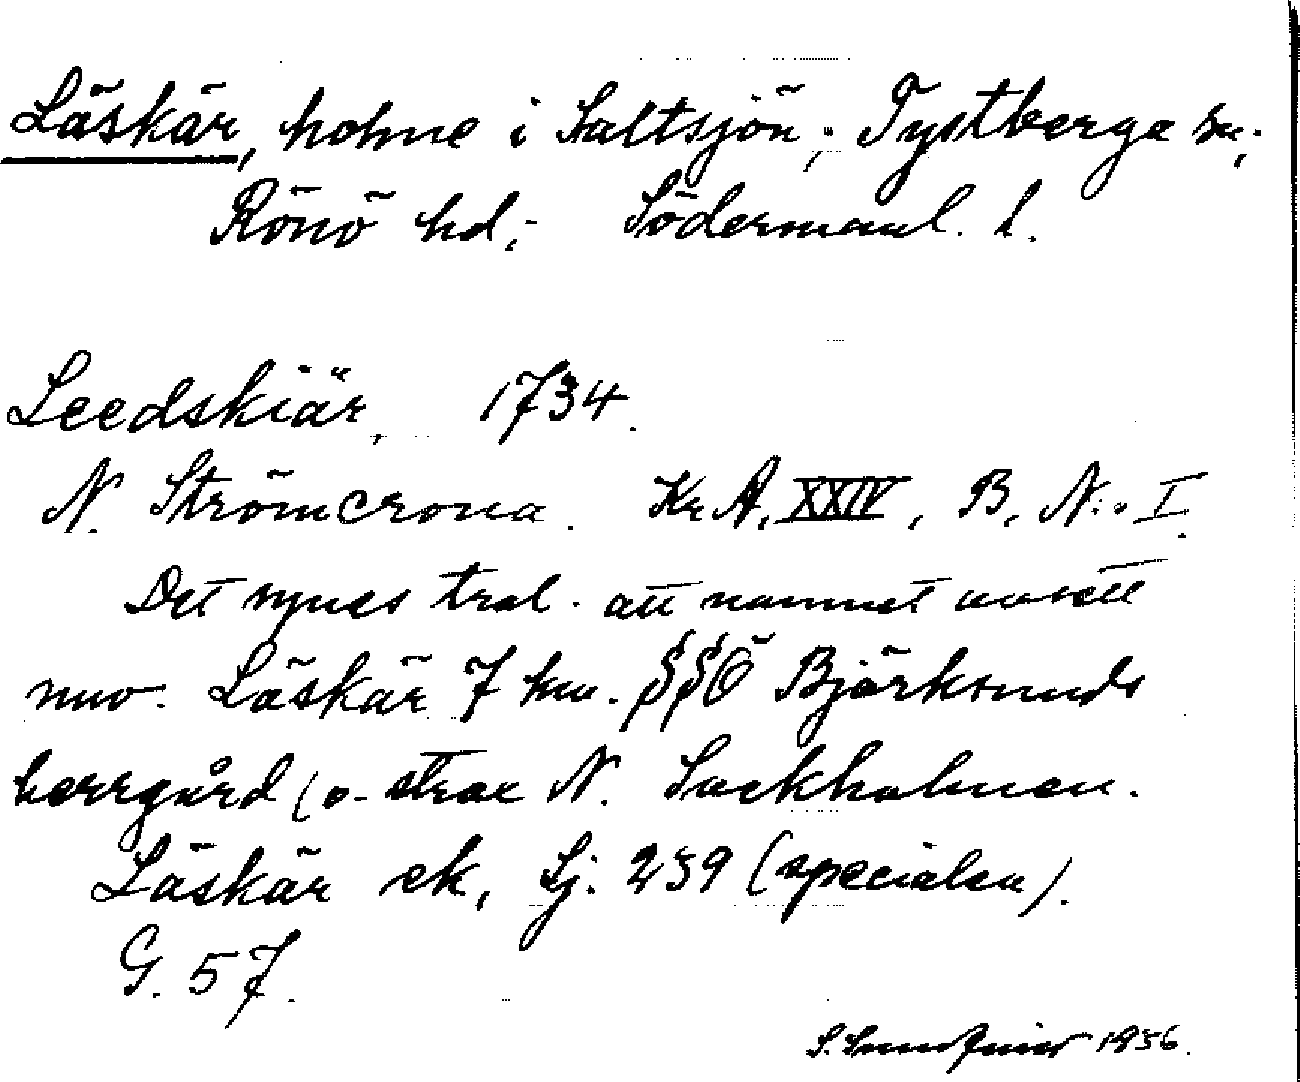 Läskär, holme i Saltsjön; Tystberga sn;
Rönö hd; Södermanl. l.
Leedskiär, 1734.
N. Strömcrona. Kr A, XXIV, B, N:o I.
Det synes tral. att namnet avsett
nuv. Läskär 7 km. SSÖ Björksunds
herrgård (o. strax N. Sackholmen.
Läskär ek, Sj. 239 (specialen).
G. 57.
S. 1936.